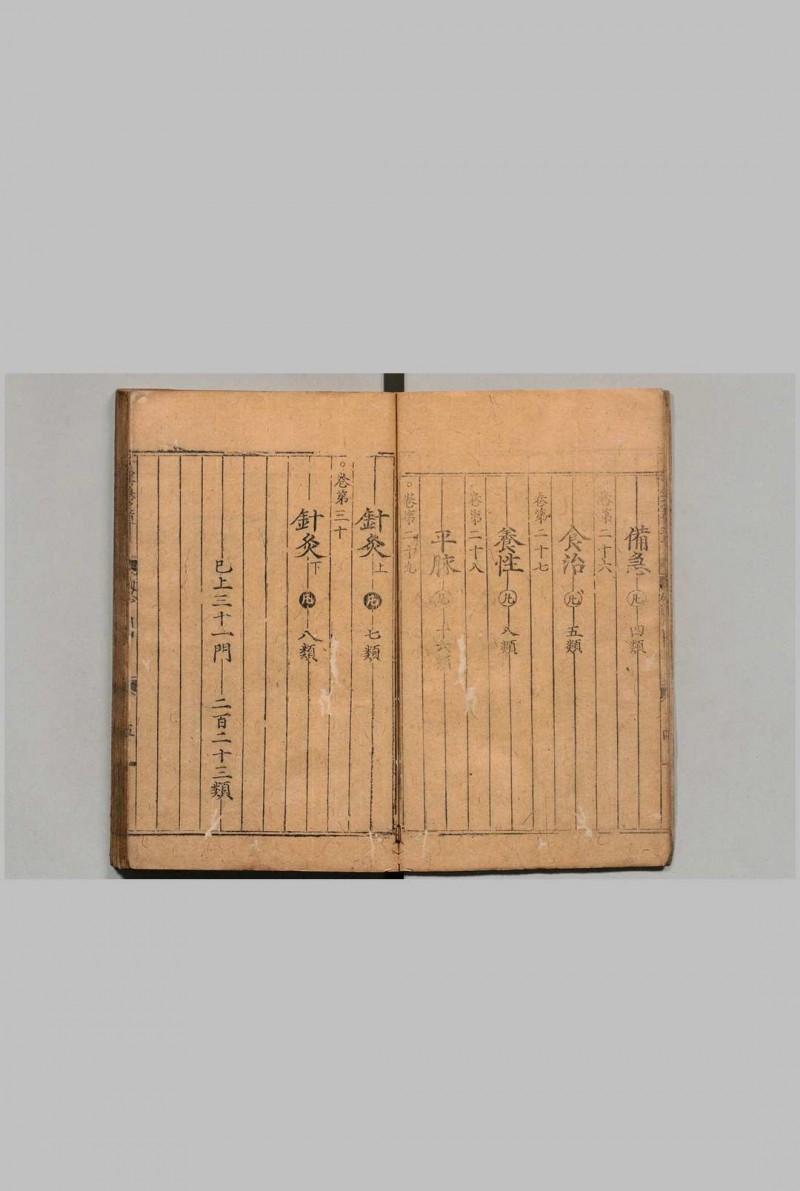 備急 凡 四類
卷第二十六
食治 凡 五類
卷第二十七
養性 凡 八類
卷第二十八
平脉 凡 十六類
卷第二十九
針灸上 凡 七類
卷第三十
針灸下 凡 八類
已上三十一門 二百二十三類